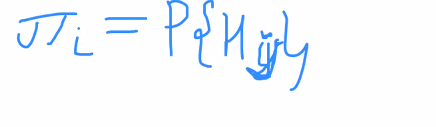 πi = P{Hij}